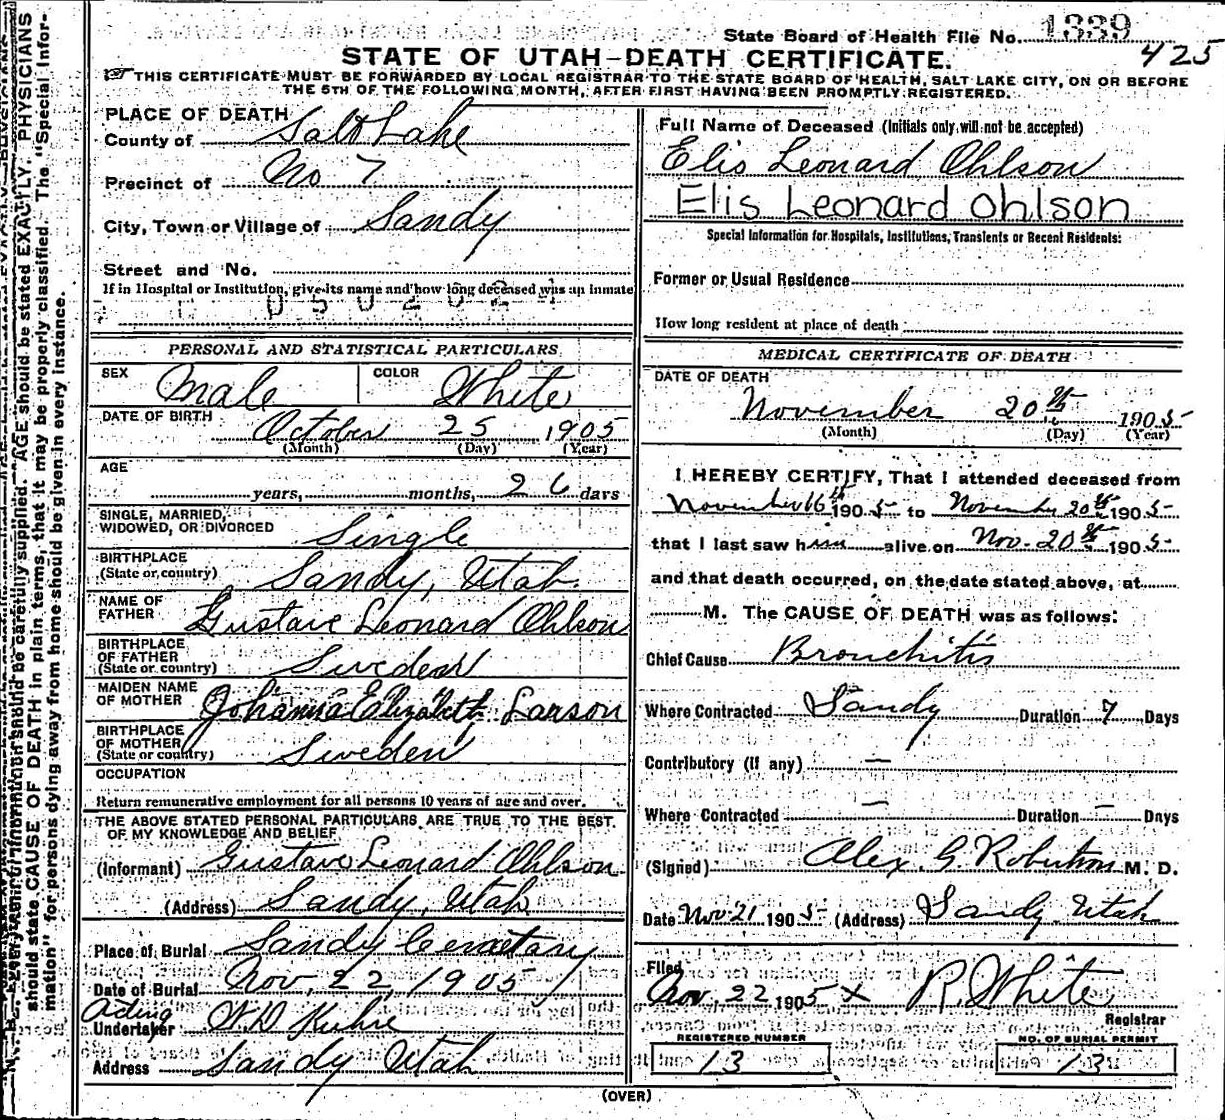 State Board of Health File No. 1339
425
STATE OF UTAH—DEATH CERTIFICATE.
THIS CERTIFICATE MUST BE FORWARDED BY LOCAL REGISTRAR TO THE STATE BOARD OF HEALTH, SALT LAKE CITY, ON OR BEFORE
THE 5TH OF THE FOLLOWING MONTH, AFTER FIRST HAVING BEEN PROMPTLY REGISTERED.
PLACE OF DEATH
County of Salt Lake
Precinct of No 7
City, Town or Village of Sandy
Street and No.
If in Hospital or Institution, give its name and how long deceased was an inmate
PERSONAL AND STATISTICAL PARTICULARS
SEX Male COLOR White
DATE OF BIRTH October 25 1905
(Month) (Day) (Year)
AGE
years, months, 26 days
SINGLE, MARRIED,
WIDOWED, OR DIVORCED Single
BIRTHPLACE
(State or country) Sandy, Utah.
NAME OF
FATHER Gustave Leonard Ohlson
BIRTHPLACE
OF FATHER
(State or country) Sweden
MAIDEN NAME
OF MOTHER Johanna Elizabeth Larson
BIRTHPLACE
OF MOTHER
(State or country) Sweden
OCCUPATION
Return remunerative employment for all persons 10 years of age and over.
THE ABOVE STATED PERSONAL PARTICULARS ARE TRUE TO THE BEST
OF MY KNOWLEDGE AND BELIEF
(Informant) Gustave Leonard Ohlson
(Address) Sandy, Utah
Place of Burial Sandy Cemetary
Date of Burial Nov, 22, 1905
Acting
Undertaker W.D. Kuhre
Address Sandy Utah
Full Name of Deceased (Initials only will not be accepted)
Elis Leonard Ohlson
Elis Leonard Ohlson
Special Information for Hospitals, Institutions, Transients or Recent Residents:
Former or Usual Residence
How long resident at place of death
MEDICAL CERTIFICATE OF DEATH
DATE OF DEATH
November 20th 1905
(Month) (Day) (Year)
I HEREBY CERTIFY, That I attended deceased from
November 16th 1905 to November 20th 1905
that I last saw him alive on Nov. 20th 1905
and that death occurred, on the date stated above, at
M. The CAUSE OF DEATH was as follows:
Chief Cause Bronchitis
Where Contracted Sandy Duration 7 Days
Contributory (if any) —
Where Contracted — Duration — Days
(Signed) Alex. G. Robertson M. D.
Date Nov 21 1905 (Address) Sandy Utah
Filed
Nov, 22 1905 X R. White
Registrar
REGISTERED NUMBER
13
NO. OF BURIAL PERMIT
13
(OVER)
should state CAUSE OF DEATH in plain terms, that it may be properly classified. The "Special Infor-
mation" for persons dying away from home should be given in every instance.